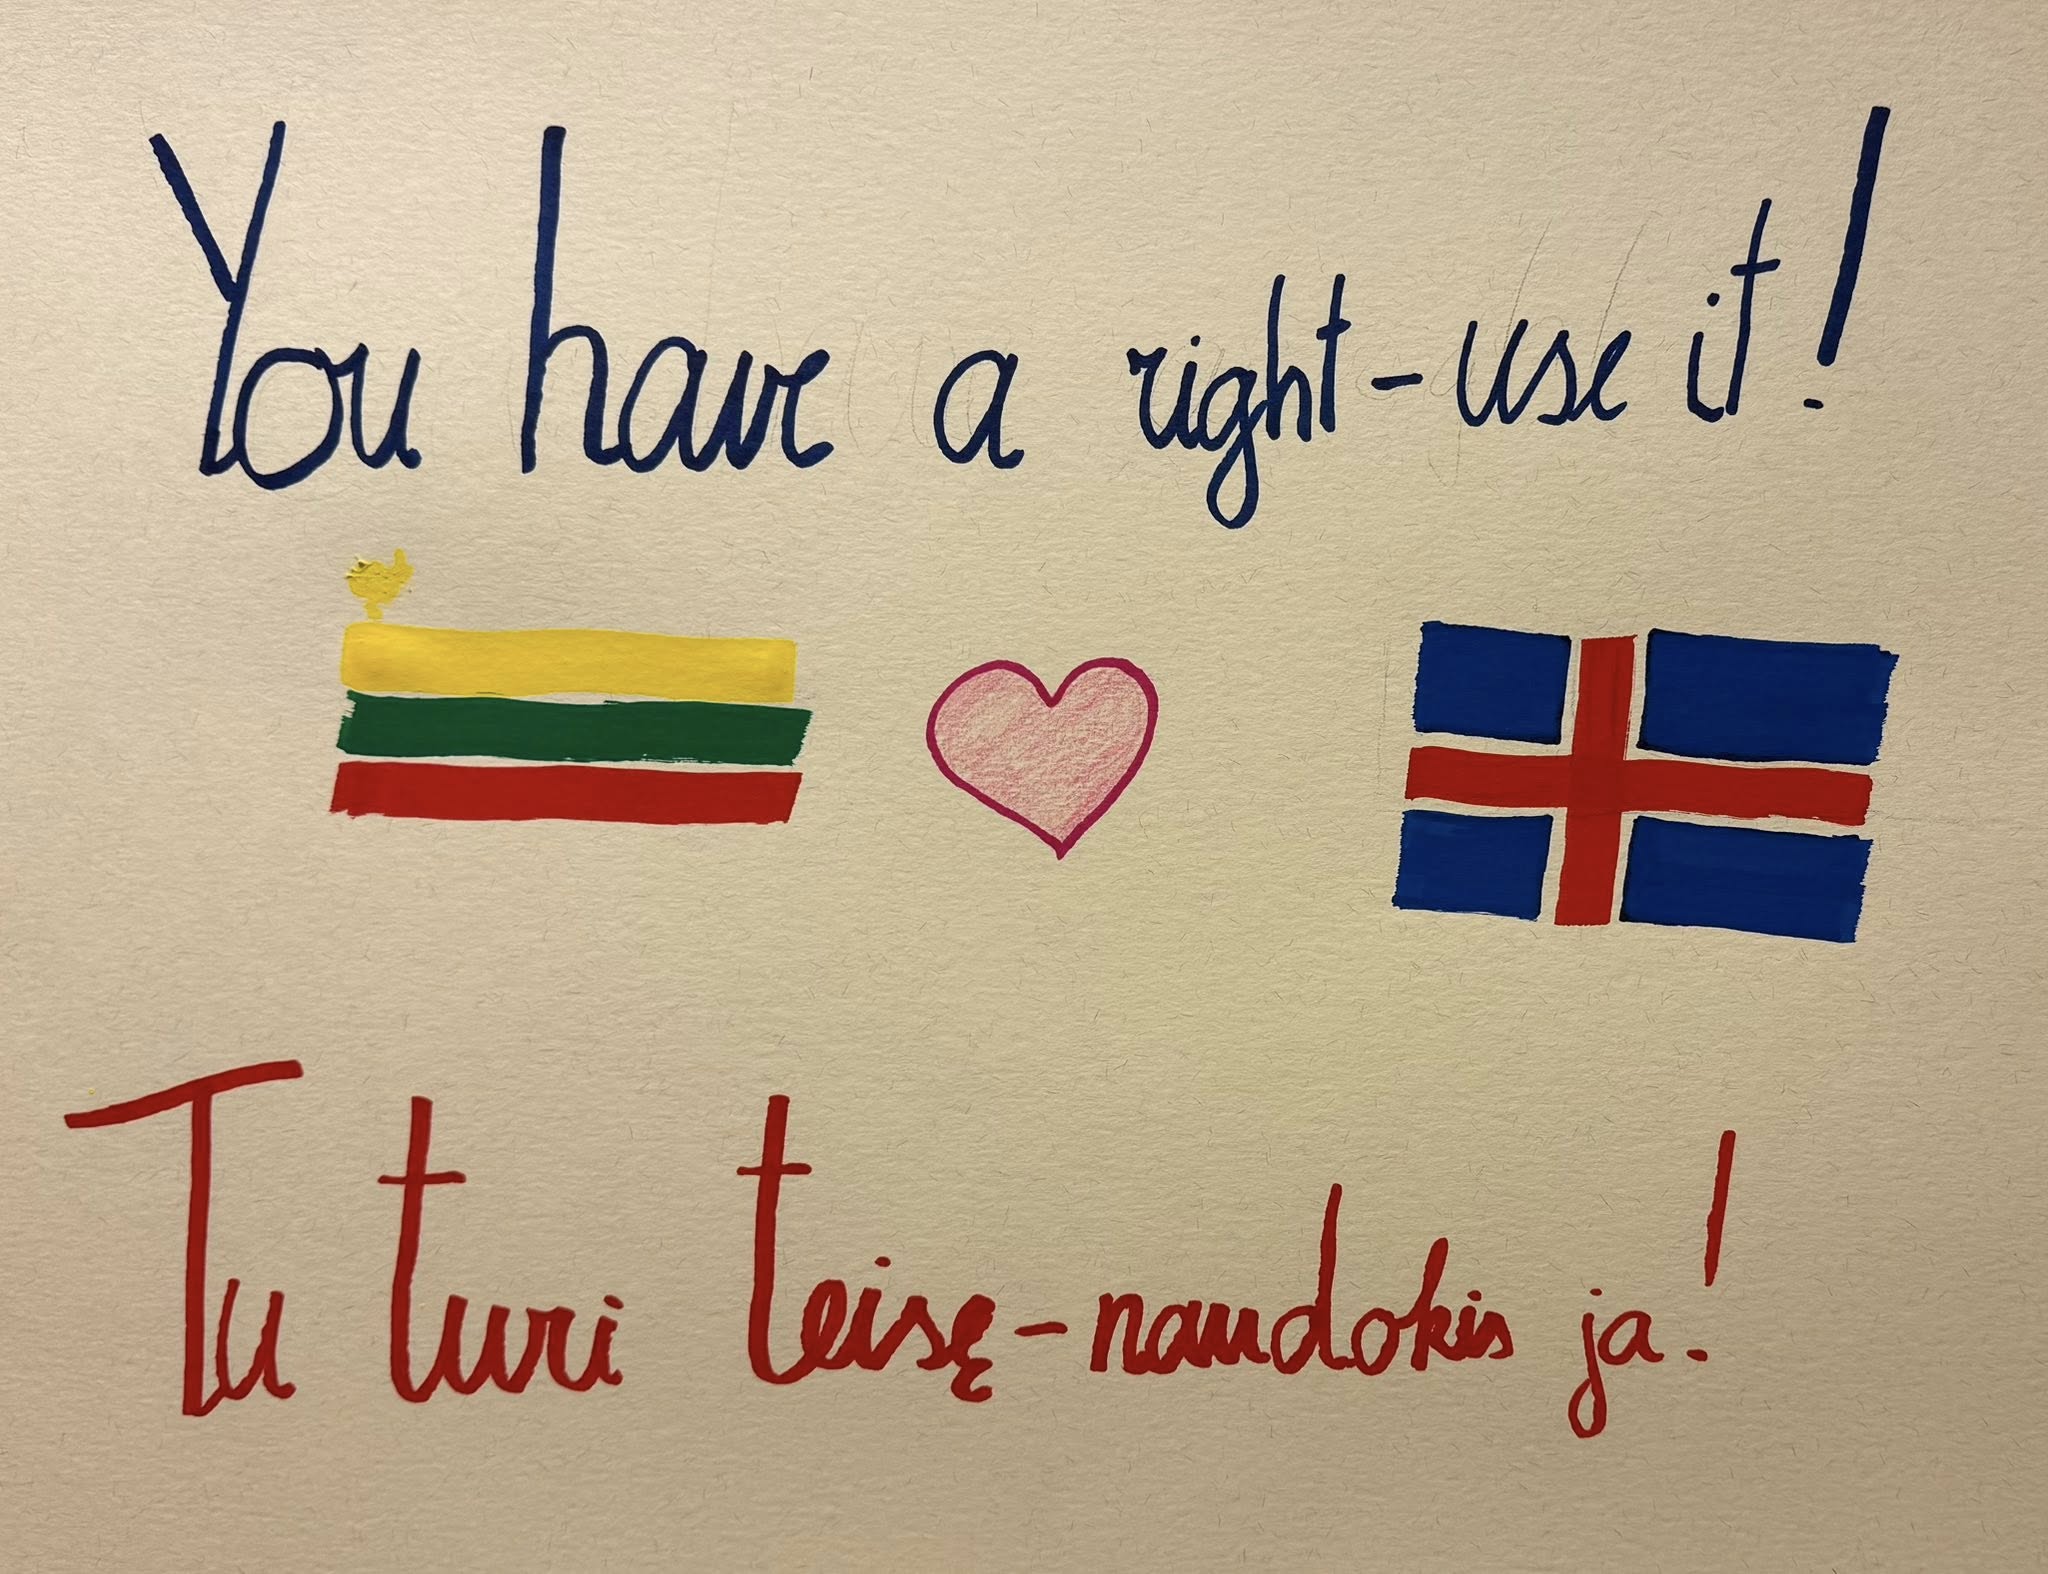 You have a right-use it!
Tu turi teisę-naudokis ja!